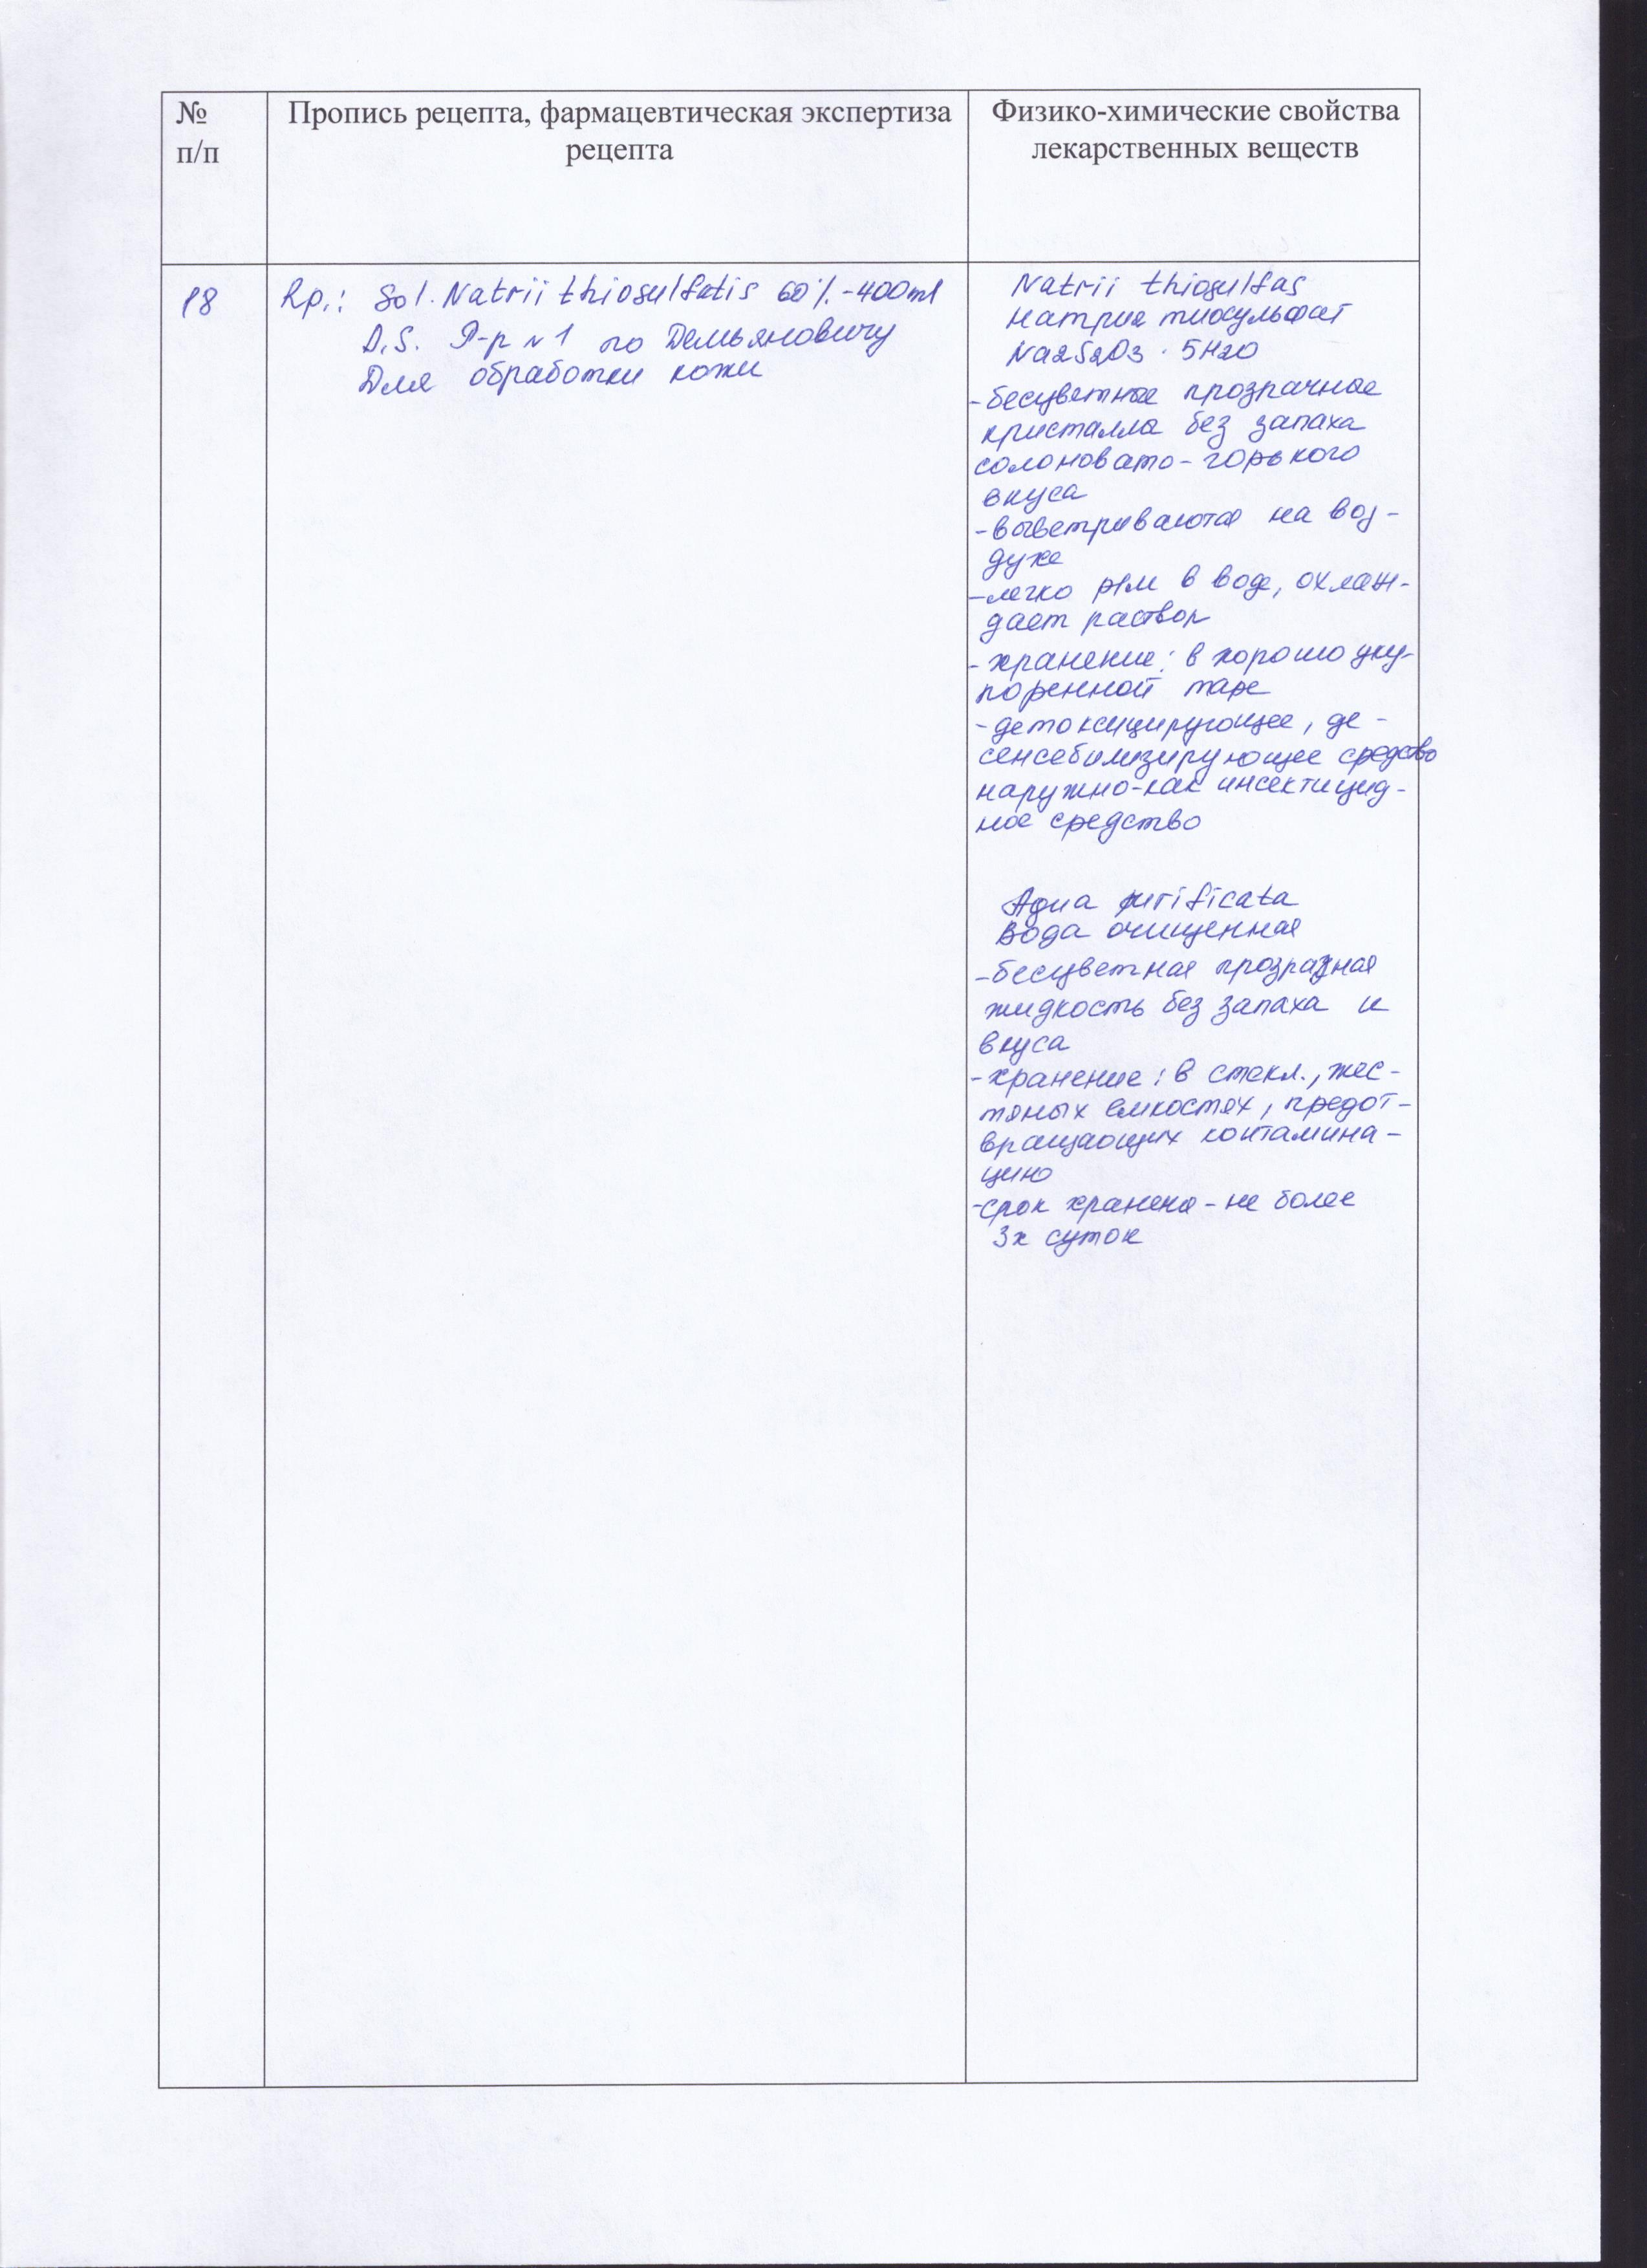 №
п/п
Пропись рецепта, фармацевтическая экспертиза
рецепта
Физико-химические свойства
лекарственных веществ
18
Rp.: Sol. Natrii thiosulfatis 60% - 400ml
D.S. Р-р №1 по Демьяновичу
Для обработки кожи
Natrii thiosulfas
Натрия тиосульфат
Na2S2O3 · 5H2O
- бесцветные прозрачные
кристаллы без запаха
солоновато-горького
вкуса
- выветриваются на воз-
духе
- легко р/м в воде, охлаж-
дает раствор
- хранение: в хорошо уку-
поренной таре
- детоксицирующее, де-
сенсебилизирующее средство
наружно-как инсектицид-
ное средство
Aqua purificata
Вода очищенная
- бесцветная прозрачная
жидкость без запаха и
вкуса
- хранение: в стекл., жес-
тяных емкостях, предот-
вращающих контамина-
цию
- срок хранения - не более
3х суток